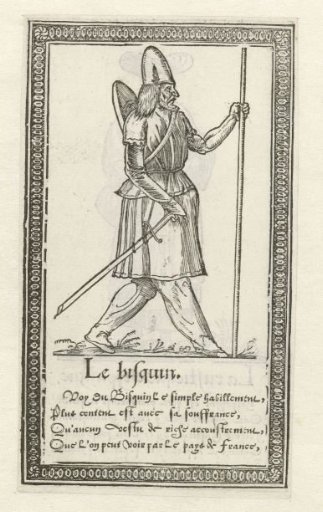 Le bisquin.
Voy du Bisquin le simple habillement,
Plus content est avec sa souffrance,
Qu'aucun vestu de riche accoustrement,
Que l'on peut voir par le pays de France,